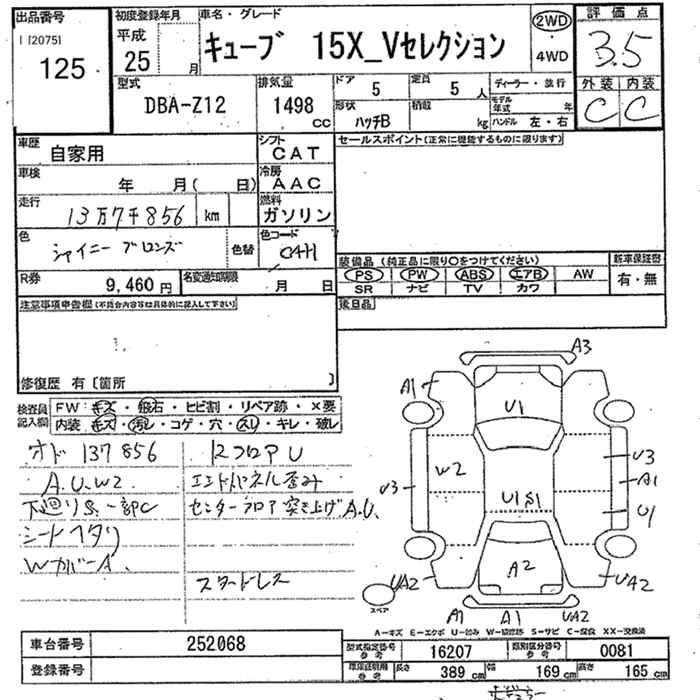 出品番号
1120751
125
初度登録年月
平成
25 月
車名・グレード
キューブ 15X_Vセレクション
2WD
・
4WD
評価点
3.5
外装 内装
C C
型式
DBA-Z12
排気量
1498
cc
ドア 5
定員 5 人
形状
ハッチB
積載 kg
ディーラー・並行
モデル年式 年
ハンドル 左・右
車歴
自家用
シフト
CAT
セールスポイント(正常に機能するものに限ります)
車検
年 月( 日)
冷房
AAC
走行
13万7千856 km
燃料
ガソリン
色
シャイニーブロンズ
色替
色コード
C4H
R券
9,460 円
名変通知期限
月 日
装備品(純正品に限り○をつけてください)
PS PW ABS エアB AW
SR ナビ TV カワ
新車保証書
有・無
後日品
注意事項申告欄(不具合内容等は具体的に記入して下さい)
修復歴 有〔箇所 〕
検査員
記入欄
FW:キズ・飛石・ヒビ割・リペア跡・×要
内装 キズ・汚レ・コゲ・穴・スレ・キレ・破レ
オド 137856
A.U.W2
下廻りS.一部C
シートヘタリ
WカバーA.
RフロアU
エンドパネル歪み
センターフロア突き上げA.U.
スタッドレス
A3
A1
U1
W2
U3
U3
A1
U1
U1S1
A2
UA2
UA2
スペア
A1
A1
UA2
A-キズ E-エクボ U-凹み W-補修跡 S-サビ C-腐食 XX-交換済
車台番号
252068
登録番号
型式指定番号
参考
16207
類別区分番号
参考
0081
参考
長さ 389 cm
幅 169 cm
高さ 165 cm